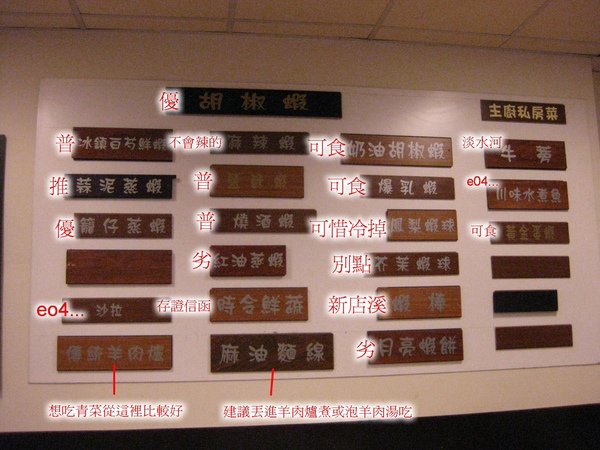 優 胡椒蝦
主廚私房菜
普 冰鎮百芍鮮蝦
不會辣的 麻辣蝦
可食 奶油胡椒蝦
淡水河 牛蒡
推 蒜泥蒸蝦
普
可食 爆乳蝦
e04... 川味水煮魚
優 籠仔蒸蝦
普 燒酒蝦
可惜冷掉 鳳梨蝦球
可食 黃金蛋蝦
劣 紅油蒸蝦
別點 芥茉蝦球
eo4... 沙拉
存證信函 時令鮮蔬
新店溪 蝦棒
傳統羊肉爐
麻油麵線
劣 月亮蝦餅
想吃青菜從這裡比較好
建議丟進羊肉爐煮或泡羊肉湯吃